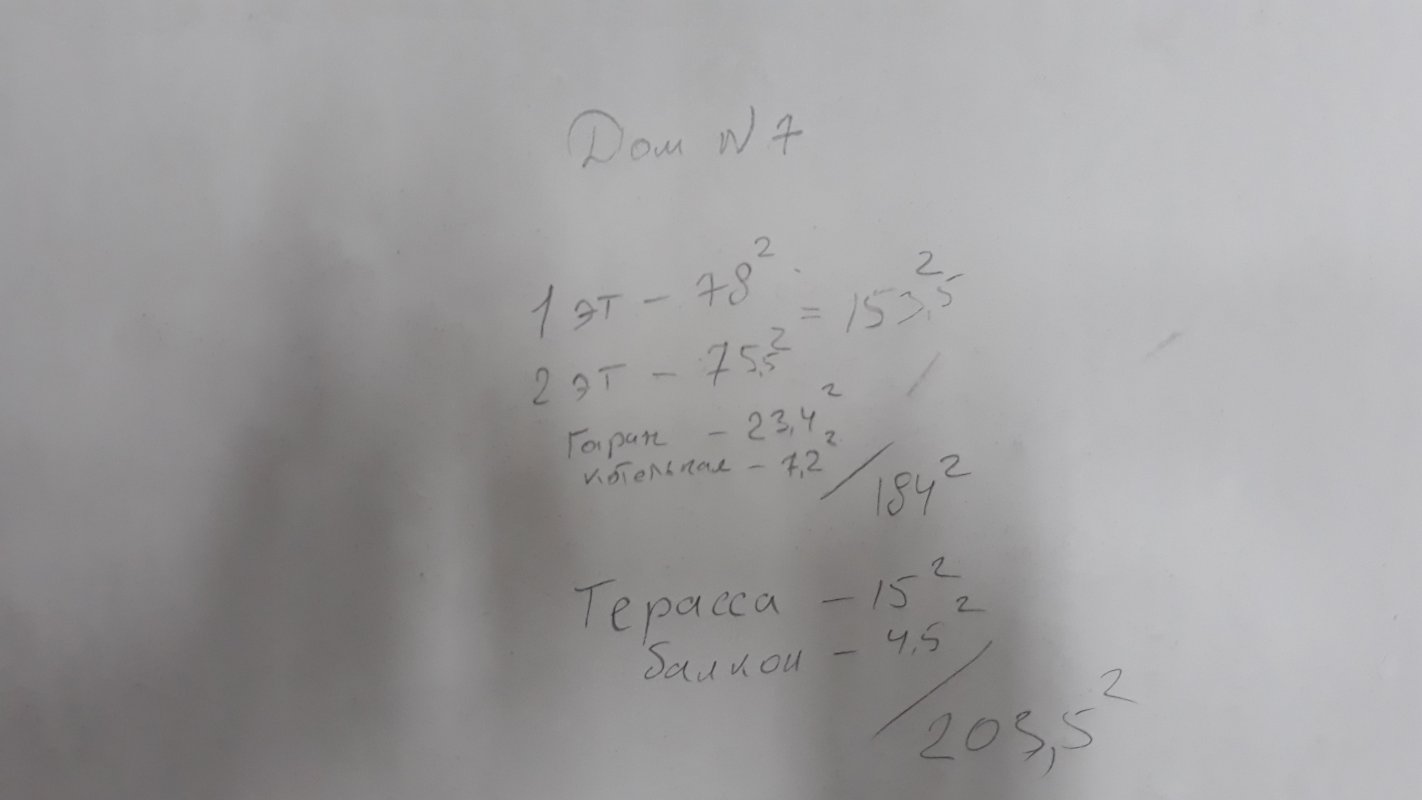 Дом N 7
1 эт - 78²
= 153,5²
2 эт - 75,5²
Гараж - 23,4²
котельная - 7,2²
184²
Терасса - 15²
балкон - 4,5²
203,5²